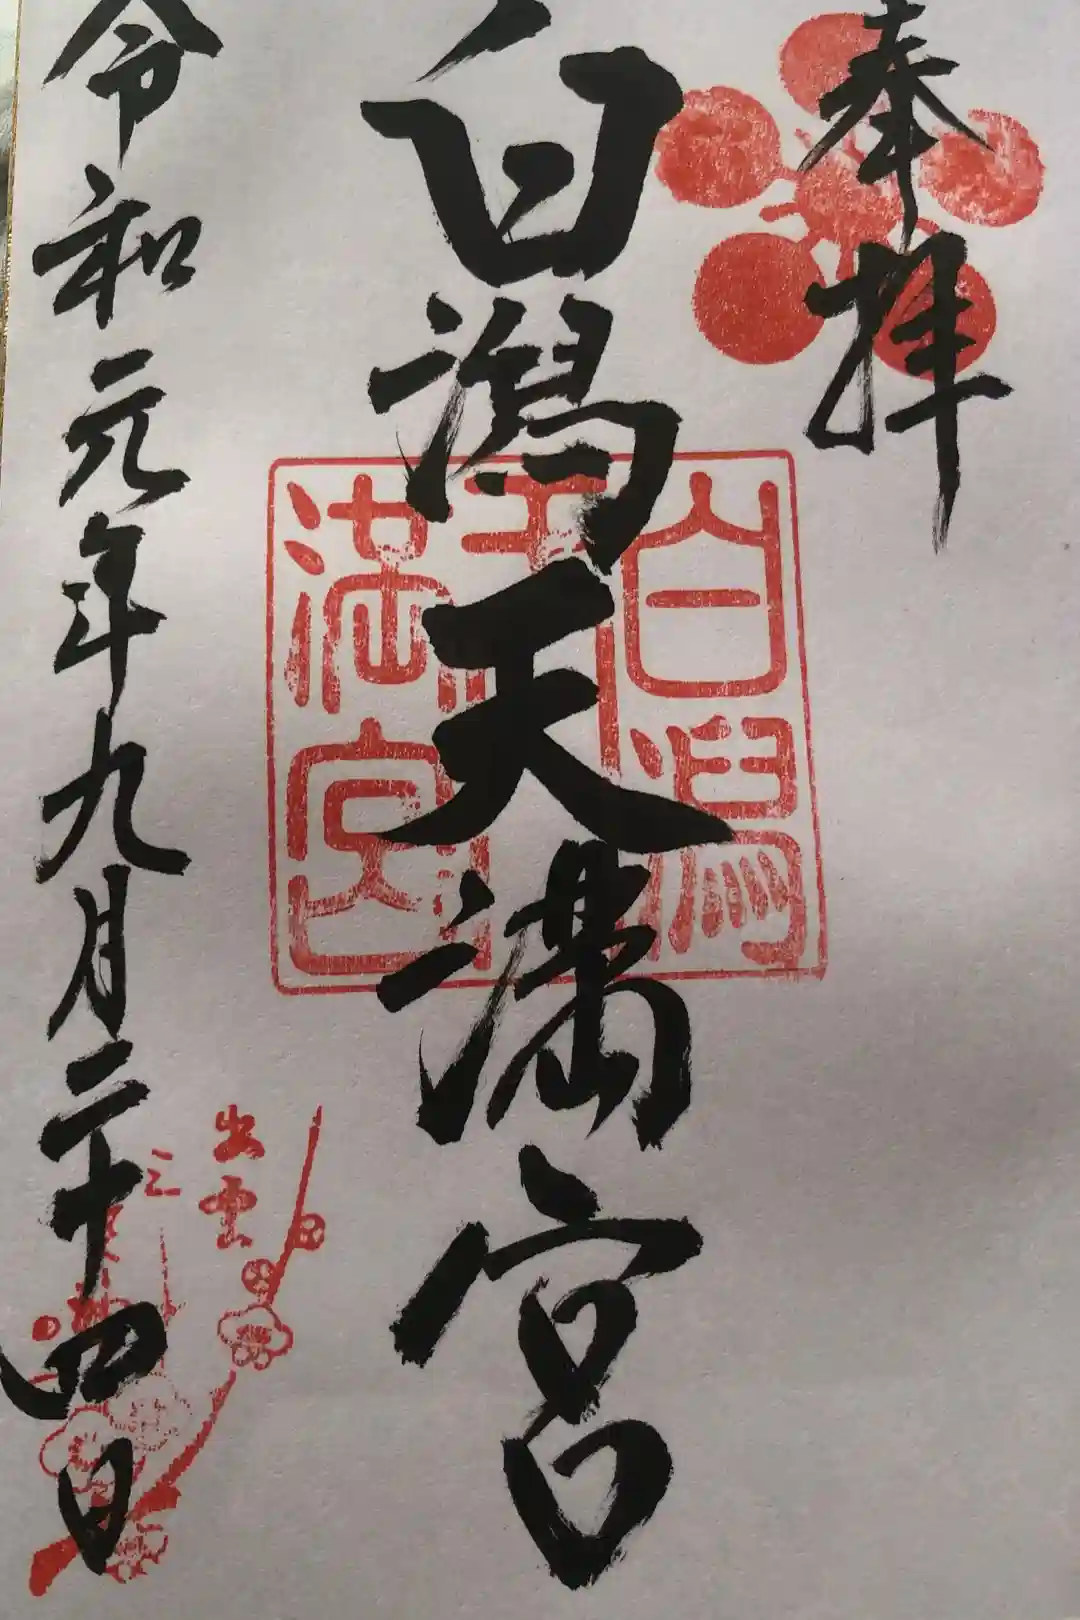 奉拝
白潟天満宮
白潟
天
満宮
令和元年九月二十四日
出雲